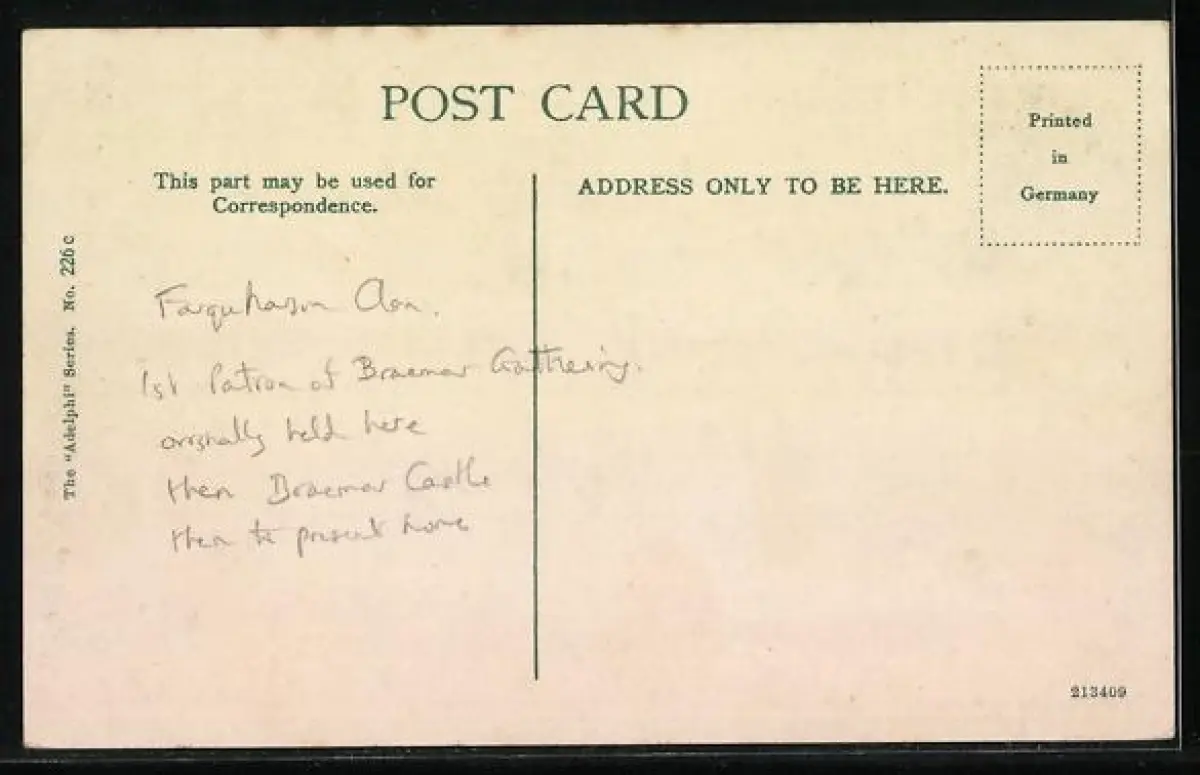 POST CARD
This part may be used for
Correspondence.
ADDRESS ONLY TO BE HERE.
Printed
in
Germany
The "Adelphi" Series. No. 226 c
Farquharson Clan.
1st Patron of Braemar Gathering.
originally held here
then Braemar Castle
then to present home
213409